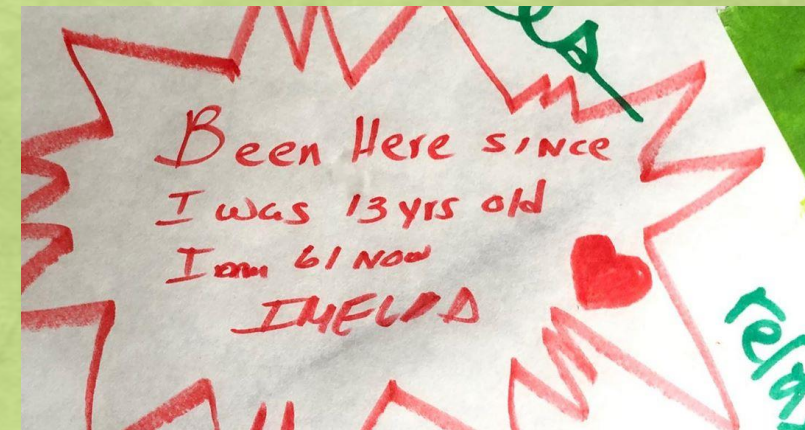 Been Here since
I was 13 yrs old
I am 61 Now
IMELDA